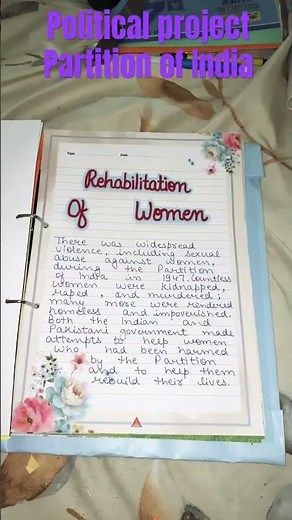 Political project
Partition of India
Date
Rehabilitation
Of Women
There was widespread
violence, including sexual
abuse against women,
during the Partition
of India in 1947. Countless
women were kidnapped,
raped, and murdered;
many more were rendered
homeless and impoverished.
Both the Indian and
Pakistani government made
attempts to help women
who had been haumed
by the Partition
and to help them
rebuild their lives.